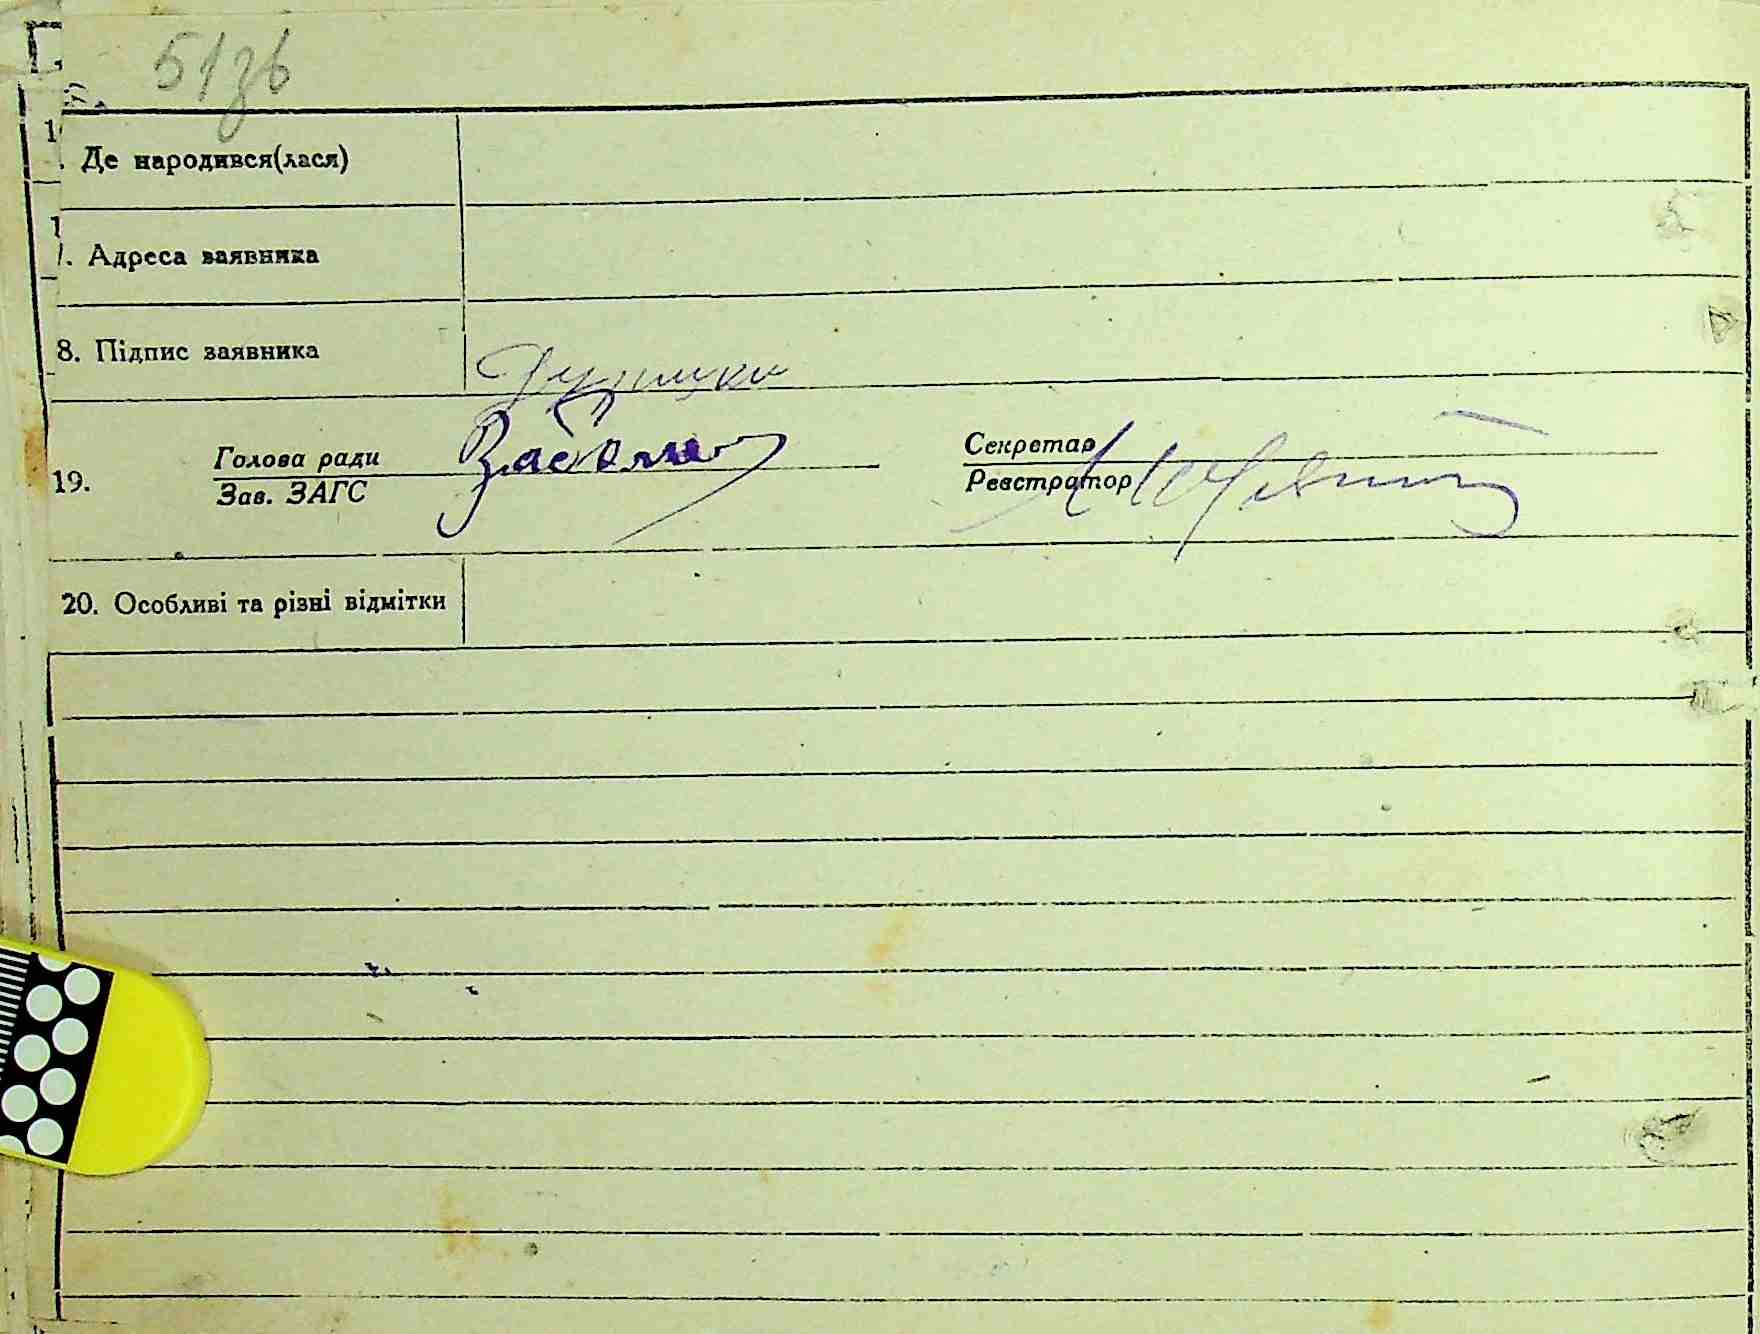 51зв
. Де народився(лася)
. Адреса заявника
8. Підпис заявника
19. Голова ради
Зав. ЗАГС
Секретар
Реєстратор
20. Особливі та різні відмітки